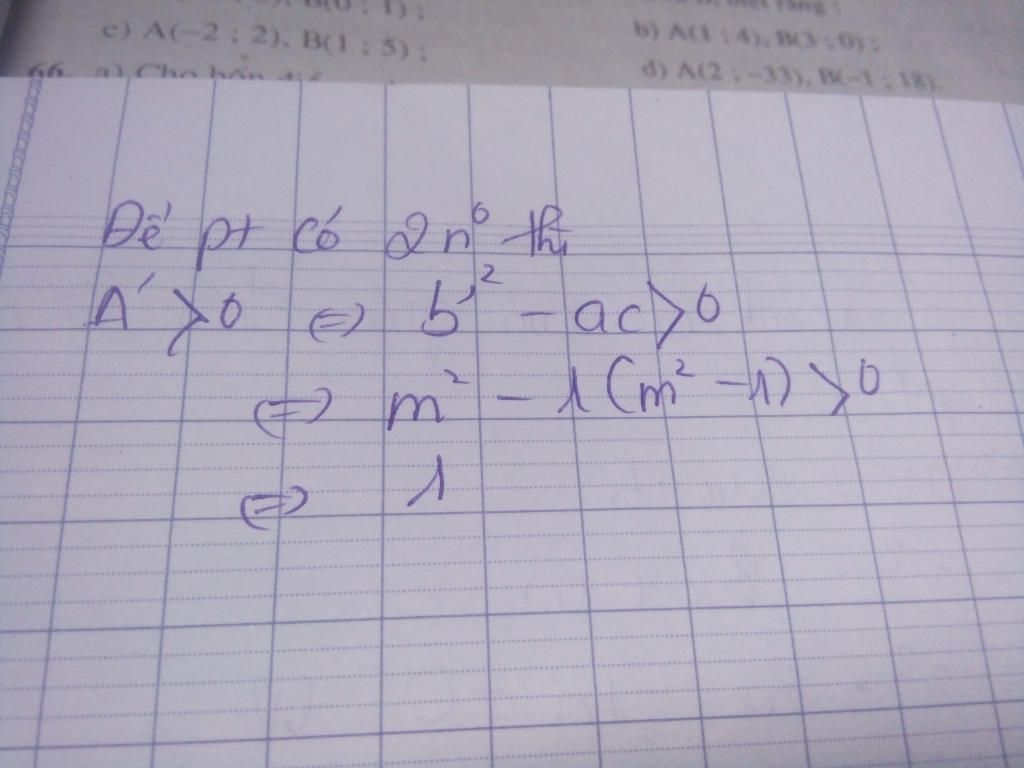 B(0 ; 1) ;
c) A(−2 ; 2), B(1 ; 5) ;
b) A(1 ; 4), B(3 ; 0) ;
66. a) Cho bốn
d) A(2 ; −33), B(−1 ; 18).
Để pt có 2n⁰ thì
Δ' > 0 ⇔ b'² − ac > 0
⇔ m² − 1(m² − 1) > 0
⇔ 1